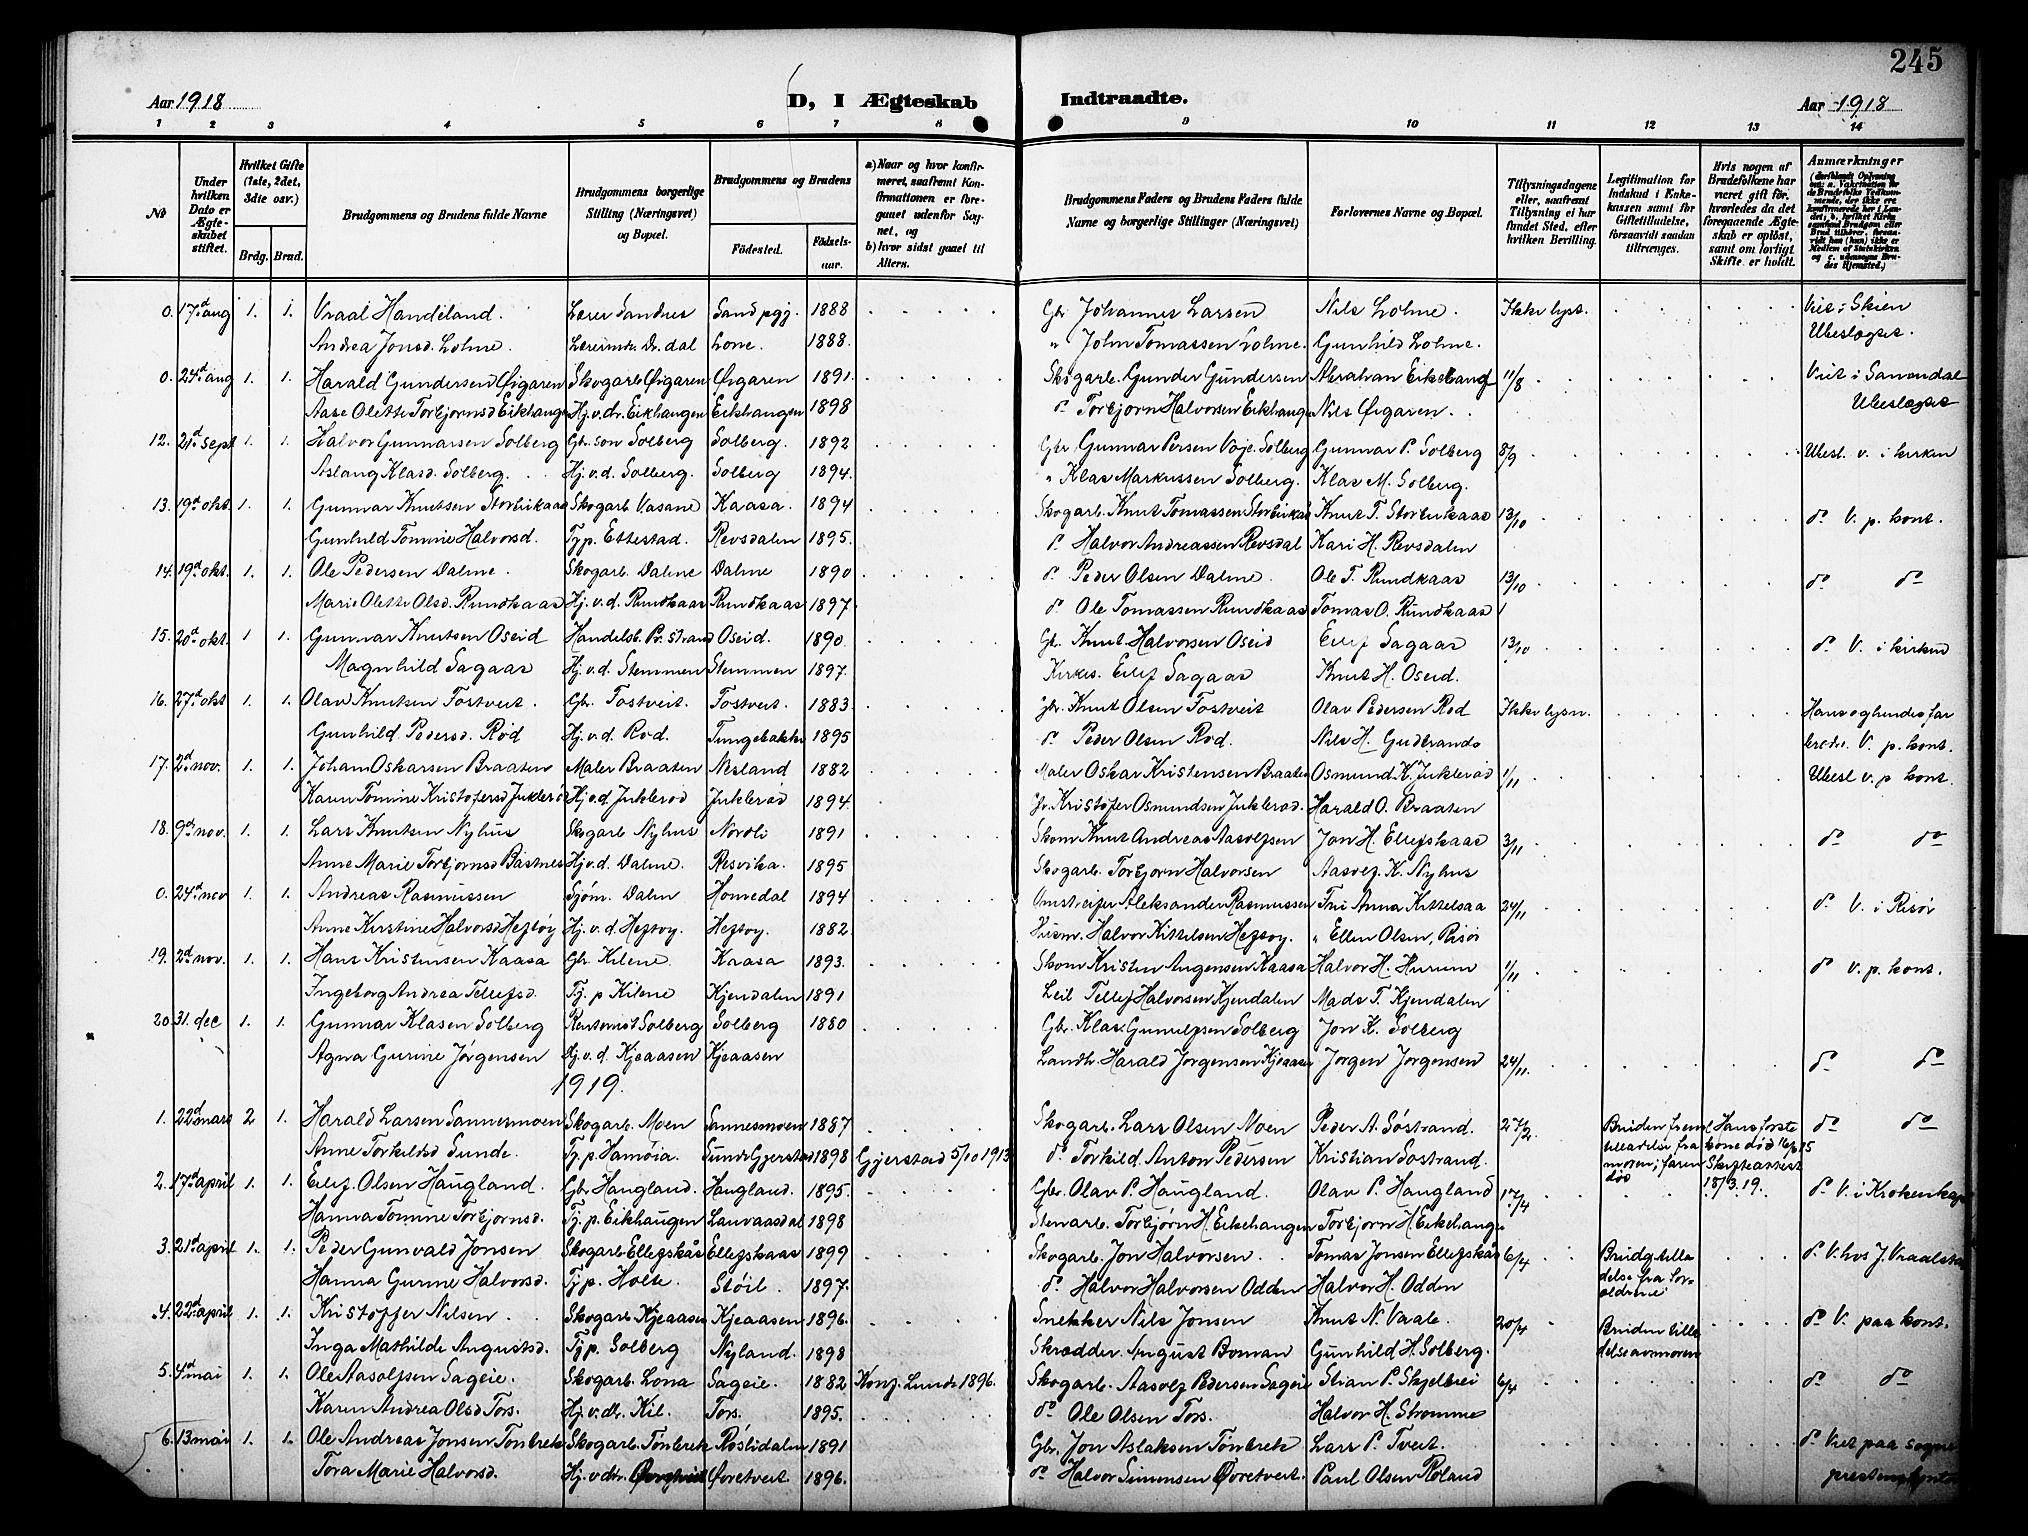 245
Aar 1918 D, I Ægteskab Indtraadte. Aar 1918
1 2 3 4 5 6 7 8 9 10 11 12 13 14
No
Under hvilken Dato er Ægteskabet stiftet.
Hvilket Gifte (1ste, 2det, 3die osv.)
Brdg. Brud.
Brudgommens og Brudens fulde Navne
Brudgommens borgerlige Stilling (Næringsvei) og Bopæl.
Brudgommens og Brudens
Fødested. Fødselsaar.
a) Naar og hvor konfirmeret, saafremt Konfirmationen er foregaaet udenfor Sognet, og
b) hvor sidst gaaet til Alters.
Brudgommens Faders og Brudens Faders fulde Navne og borgerlige Stillinger (Næringsvei)
Forlovernes Navne og Bopæl.
Tillysningsdagene eller, saafremt Tillysning ei har fundet Sted, efter hvilken Bevilling.
Legitimation for Indskud i Enkekassen samt for Giftetilladelse, forsaavidt saadan tiltrænges.
Hvis nogen af Brudefolkene har været gift før, hvorledes da det foregaaende Ægteskab er opløst, samt om lovligt Skifte er holdt.
Anmærkninger
0. 17d aug 1. 1. Vraal Handeland. Lærer Sandnes Sand pgj. 1888 Gbr Johannes Larsen Nils Lohne. Ikke lyst. Viet i Skien
Andrea Jonsd. Lohne. Lærerinde Dr. dal Lone. 1888. " John Tomassen Lohne. Gunhild Lohne. Ubeslægtet.
0. 24d aug 1. 1. Harald Gundersen Øigaren Skogarb Øigaren Øigaren 1891. Skogarb. Gunder Gundersen Abrahan Eikehaug 11/8 Viet i Sanndal
Aase Olette Torbjørnsd Eikhaugen Hj.v.dr. Eikhaugen Eikhaugen 1898 do Torbjørn Halvorsen Eikhaug Nils Øigaren. Ubeslægtet
12. 21d sept 1. 1. Halvor Gunnarsen Solberg Gbr son Solberg Solberg. 1892 Gbr Gunnar Persen Voje Solberg Gunnar P. Solberg 8/9 Ubesl. v. i kirken
Aslaug Klasd. Solberg. Hj.v.d. Solberg. Solberg 1894. " Klas Markussen Solberg. Klas M. Solberg.
13. 19d okt. 1. 1. Gunnar Knutsen Storbukaas Skogarb Vasane Kaasa. 1894 Skogarb. Knut Tomassen Storbukaas Knut T. Storbukaas 13/10 do V. p. kont.
Gunhild Tomine Halvorsd. Tj p. Ettestad. Revsdalen 1895. do Halvor Andreassen Revsdal Kari H. Revsdalen
14. 19d okt. 1. 1. Ole Pedersen Dalene. Skogarb. Dalene Dalene 1890 do Peder Olsen Dalene. Ole T. Rundkaas 13/10 do do
Marie Olette Olsd. Rundkaas Hj.v.d. Rundkaas Rundkaas 1897. do Ole Tomassen Rundkaas Tomas O. Rundkaas
15. 20d okt. 1 1. Gunnar Knutsen Oseid Handelsb. Pr. strand Oseid. 1890. Gb. Knut Halvorsen Oseid Ellef Sagaas 13/10 do V. i kirken
Magnhild Sagaas Hj.v.d. Stemmen Stemmen 1897. Kirkes. Ellef Sagaas Knut H. Oseid.
16. 27d okt 1. 1. Olav Knutsen Tostveit. Gbr. Tostveit. Tostveit. 1883. Gbr. Knut Olsen Tostveit Olav Pedersen Rød Ikke lysn. Hans og hendes far
Gunhild Pedersd. Rød Hj.v.d. Rød. Tungebakke 1895 do Peder Olsen Rød. Nils H. Gudbrands brødre. V. p. kont.
17. 2d nov. 1. 1. Johan Oskarsen Braaten Maler Braaten Nesland 1882 Maler Oskar Kristensen Braaten Osmund K. Juklerød 1/11 Ubesl v. p kont.
Karen Tomine Kristofersd Juklerød Hj.v.d. Juklerød Juklerød 1894. Gb. Kristofer Osmundsen Juklerød. Harald O. Braaten
18. 9d nov. 1. 1. Lars Knutsen Nyhus Skogarb Nyhus Nordli 1891 Skom Knut Andreas Aasolfsen Jon H. Ellefskaas 3/11 do do
Anne Marie Torbjørnsd Bastnes Hj.v.d. Dalene. Resvika. 1895 Skogarb. Torbjørn Halvorsen Aasolf K. Nyhus
0. 24d nov 1. 1. Andreas Rasmussen Sjøm. Dalen Homedal 1894 Omstreifer Aleksander Rasmussen Fru Anna Kittelsaa 24/11 do V. i Risør
Anne Kirstine Halvorsd Heftøy Hj.v.d. Heftøy. Heftøy. 1882 Husm. Halvor Kittelsen Heftøy. " Ellen Olsen, Risør
19. 2d nov. 1. 1. Hans Kristensen Kaasa Gbr Kilene. Kaasa 1893. Skom Kristen Augensen Kaasa Halvor H. Hurum 1/11 do v. p. kont.
Ingeborg Andrea Tellefsd. Tj. p Kilene Kjendalen 1891 Leil Tellef Halvorsen Kjendalen Mads T. Kjendalen
20. 31. dec 1. 1. Gunnar Klasen Solberg Rentenist Solberg Solberg 1880 Gbr. Klas Gunulfsen Solberg Jon K. Solberg
Agna Gurine Jørgensen Hj.v.d. Kjeaasen Kjeaasen Landh. Harald Jørgensen Kjeaasen Jørgen Jørgensen 24/11. do do
1919.
1. 22d mars 2 1. Harald Larsen Sannesmoen Skogarb. Moen Sannesmoen 1887 Skogarb. Lars Olsen Moen Peder A. Søstrand. 27/2 Bruden freml. tilladelse fra moren; faren død Hans første kone død 16/3 15 Skifteattest 18/3. 19. do do
Anne Torkildsd Sunde. Tj. p. Hamøia. Sunde Gjerstad 1898 Gjerstad 5/10 1913 do Torkild Anton Pedersen Kristian Søstrand.
2. 17d april 1. 1. Ellef Olsen Haugland. Gbr Haugland. Haugland. 1895. Gbr. Olav P. Haugland. Olav P. Haugland 17/4 do V. i Krokenkap
Hanna Tomine Torbjørnsd. Tj. p. Eikhaugen Lauvaasdal 1898 Stenarb. Torbjørn H. Eikehaugen Torbjørn H. Eikehaug
3. 21d april 1. 1. Peder Gunvald Jonsen Skogarb Ellefskås Ellefskaas 1899 Skogarb. Jon Halvorsen Tomas Jonsen Ellefskås 6/4 Brudg. tilladelse fra foreldrene do V. hos J. Vraalstad
Hanna Gurine Halvorsd. Tj p. Holte. Støil. 1897. do Halvor Halvorsen Odden Halvor H. Odden
4. 22d april 1. 1. Kristoffer Nilsen. Skogarb Kjeaasen Kjeaasen 1896. Snekker Nils Jonsen Knut N. Vaale. 20/4 Bruden tilladelse av moren do V. paa kont.
Inga Mathilde Augustsd. Tj p. Solberg Nyland. 1898 Skrædder. August Boman Gunhild H. Solberg.
5. 4d mai 1. 1. Ole Aasolfsen Sageie. Skogarb. Lona Sageie. 1882 Konf. Lunde 1896. Skogarb. Aasolf Pedersen Sageie Stian P. Skjelbrei 6/4 do do
Karen Andrea Olsd Tors. Hj.v.dr. Kil. Tors. 1895. do Ole Olsen Tors. Halvor H. Strømme
6. 13 mai 1. 1. Ole Andreas Jonsen Tonbrek Skogarb. Tonbrek Røslidalen 1891 Gbr. Jon Aslaksen Tonbrek Lars P. Tveit. do Viet paa sogne
Tora Marie Halvorsd. Hj.v.dr. Øvretveit Øvretveit. 1896. do Halvor Simonsen Øvretveit. Paul Olsen Røland prestens kontor